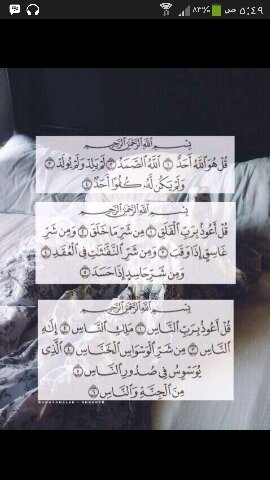 ٥:٤٩ ص ٨٣%
بِسْمِ اللَّهِ الرَّحْمَٰنِ الرَّحِيمِ
قُلْ هُوَ اللَّهُ أَحَدٌ ١ اللَّهُ الصَّمَدُ ٢ لَمْ يَلِدْ وَلَمْ يُولَدْ ٣
وَلَمْ يَكُن لَّهُ كُفُوًا أَحَدٌ ٤
بِسْمِ اللَّهِ الرَّحْمَٰنِ الرَّحِيمِ
قُلْ أَعُوذُ بِرَبِّ الْفَلَقِ ١ مِن شَرِّ مَا خَلَقَ ٢ وَمِن شَرِّ
غَاسِقٍ إِذَا وَقَبَ ٣ وَمِن شَرِّ النَّفَّاثَاتِ فِي الْعُقَدِ ٤
وَمِن شَرِّ حَاسِدٍ إِذَا حَسَدَ ٥
بِسْمِ اللَّهِ الرَّحْمَٰنِ الرَّحِيمِ
قُلْ أَعُوذُ بِرَبِّ النَّاسِ ١ مَلِكِ النَّاسِ ٢ إِلَٰهِ
النَّاسِ ٣ مِن شَرِّ الْوَسْوَاسِ الْخَنَّاسِ ٤ الَّذِي
يُوَسْوِسُ فِي صُدُورِ النَّاسِ ٥
مِنَ الْجِنَّةِ وَالنَّاسِ ٦